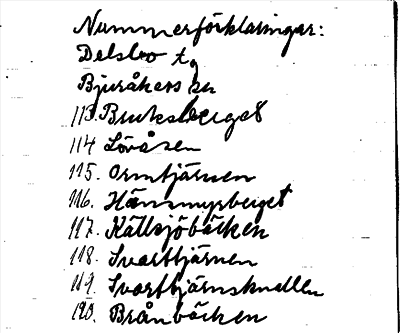 Nummerförklaringar:
Delsbo t.
Bjuråkers sn
113. Bruksberget
114 Lövåsen
115. Ormtjärnen
116. Hänsmyrberget
117. Kättsjöbäcken
118. Svarttjärnen
119. Svarttjärnsknallen
120. Brånbäcken